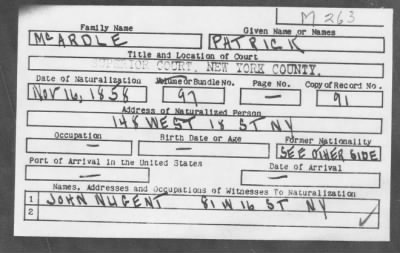 M 263
Family Name Given Name or Names
McARDLE PATRICK
Title and Location of Court
SUPERIOR COURT, NEW YORK COUNTY.
Date of Naturalization Volume or Bundle No. Page No. Copy of Record No.
Nov 16, 1858 97 — 91
Address of Naturalized Person
148 WEST 18 ST NY
Occupation Birth Date or Age Former Nationality
— — SEE OTHER SIDE
Port of Arrival in the United States Date of Arrival
— —
Names, Addresses and Occupations of Witnesses To Naturalization
1 JOHN NUGENT 81 W 16 ST NY
2